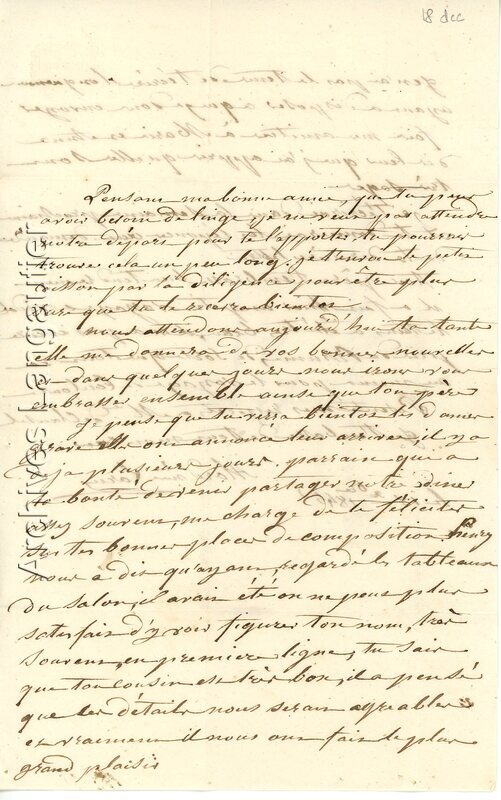 18 dec
Pensant ma bonne amie, que tu peux
avoir besoin de linge, je ne veux pas attendre
notre départ pour te l'apporter tu pourrais
trouver cela un peu long. je t'envoie le petit
par la diligence pour être plus
sure que tu le recevra bientot
nous attendons aujourd'hui ta tante
elle me donnera de vos bonnes nouvelles
et dans quelques jours nous irons vous
embrasser ensemble ainsi que ton père
Je pense que tu verra bientot les Dames
elle ont annoncé leur arrivée, il y a
déja plusieurs jours. parrain qui a
la bonté de venir partager notre diner
assez souvent, me charge de te féliciter
sur tes bonnes places de composition henry
nous a dit qu'ayant regardé les tableaux
du salon, il avait été on ne peut plus
satisfait d'y voir figurer ton nom, très
souvent en premiere ligne, tu sais
que ton cousin est très bon, il a pensé
que les détails nous serait agreables
et vraiment il nous ont fait le plus
grand plaisir
Archives Langautier